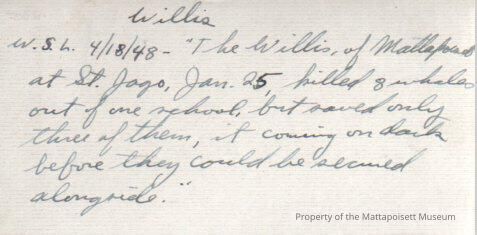 Willis
W.S.L. 4/18/48 - "The Willis, of Mattapoisett
at St. Jago, Jan. 25, killed 8 whales
out of one school, but saved only
three of them, it coming on dark
before they could be secured
alongside."
Property of the Mattapoisett Museum